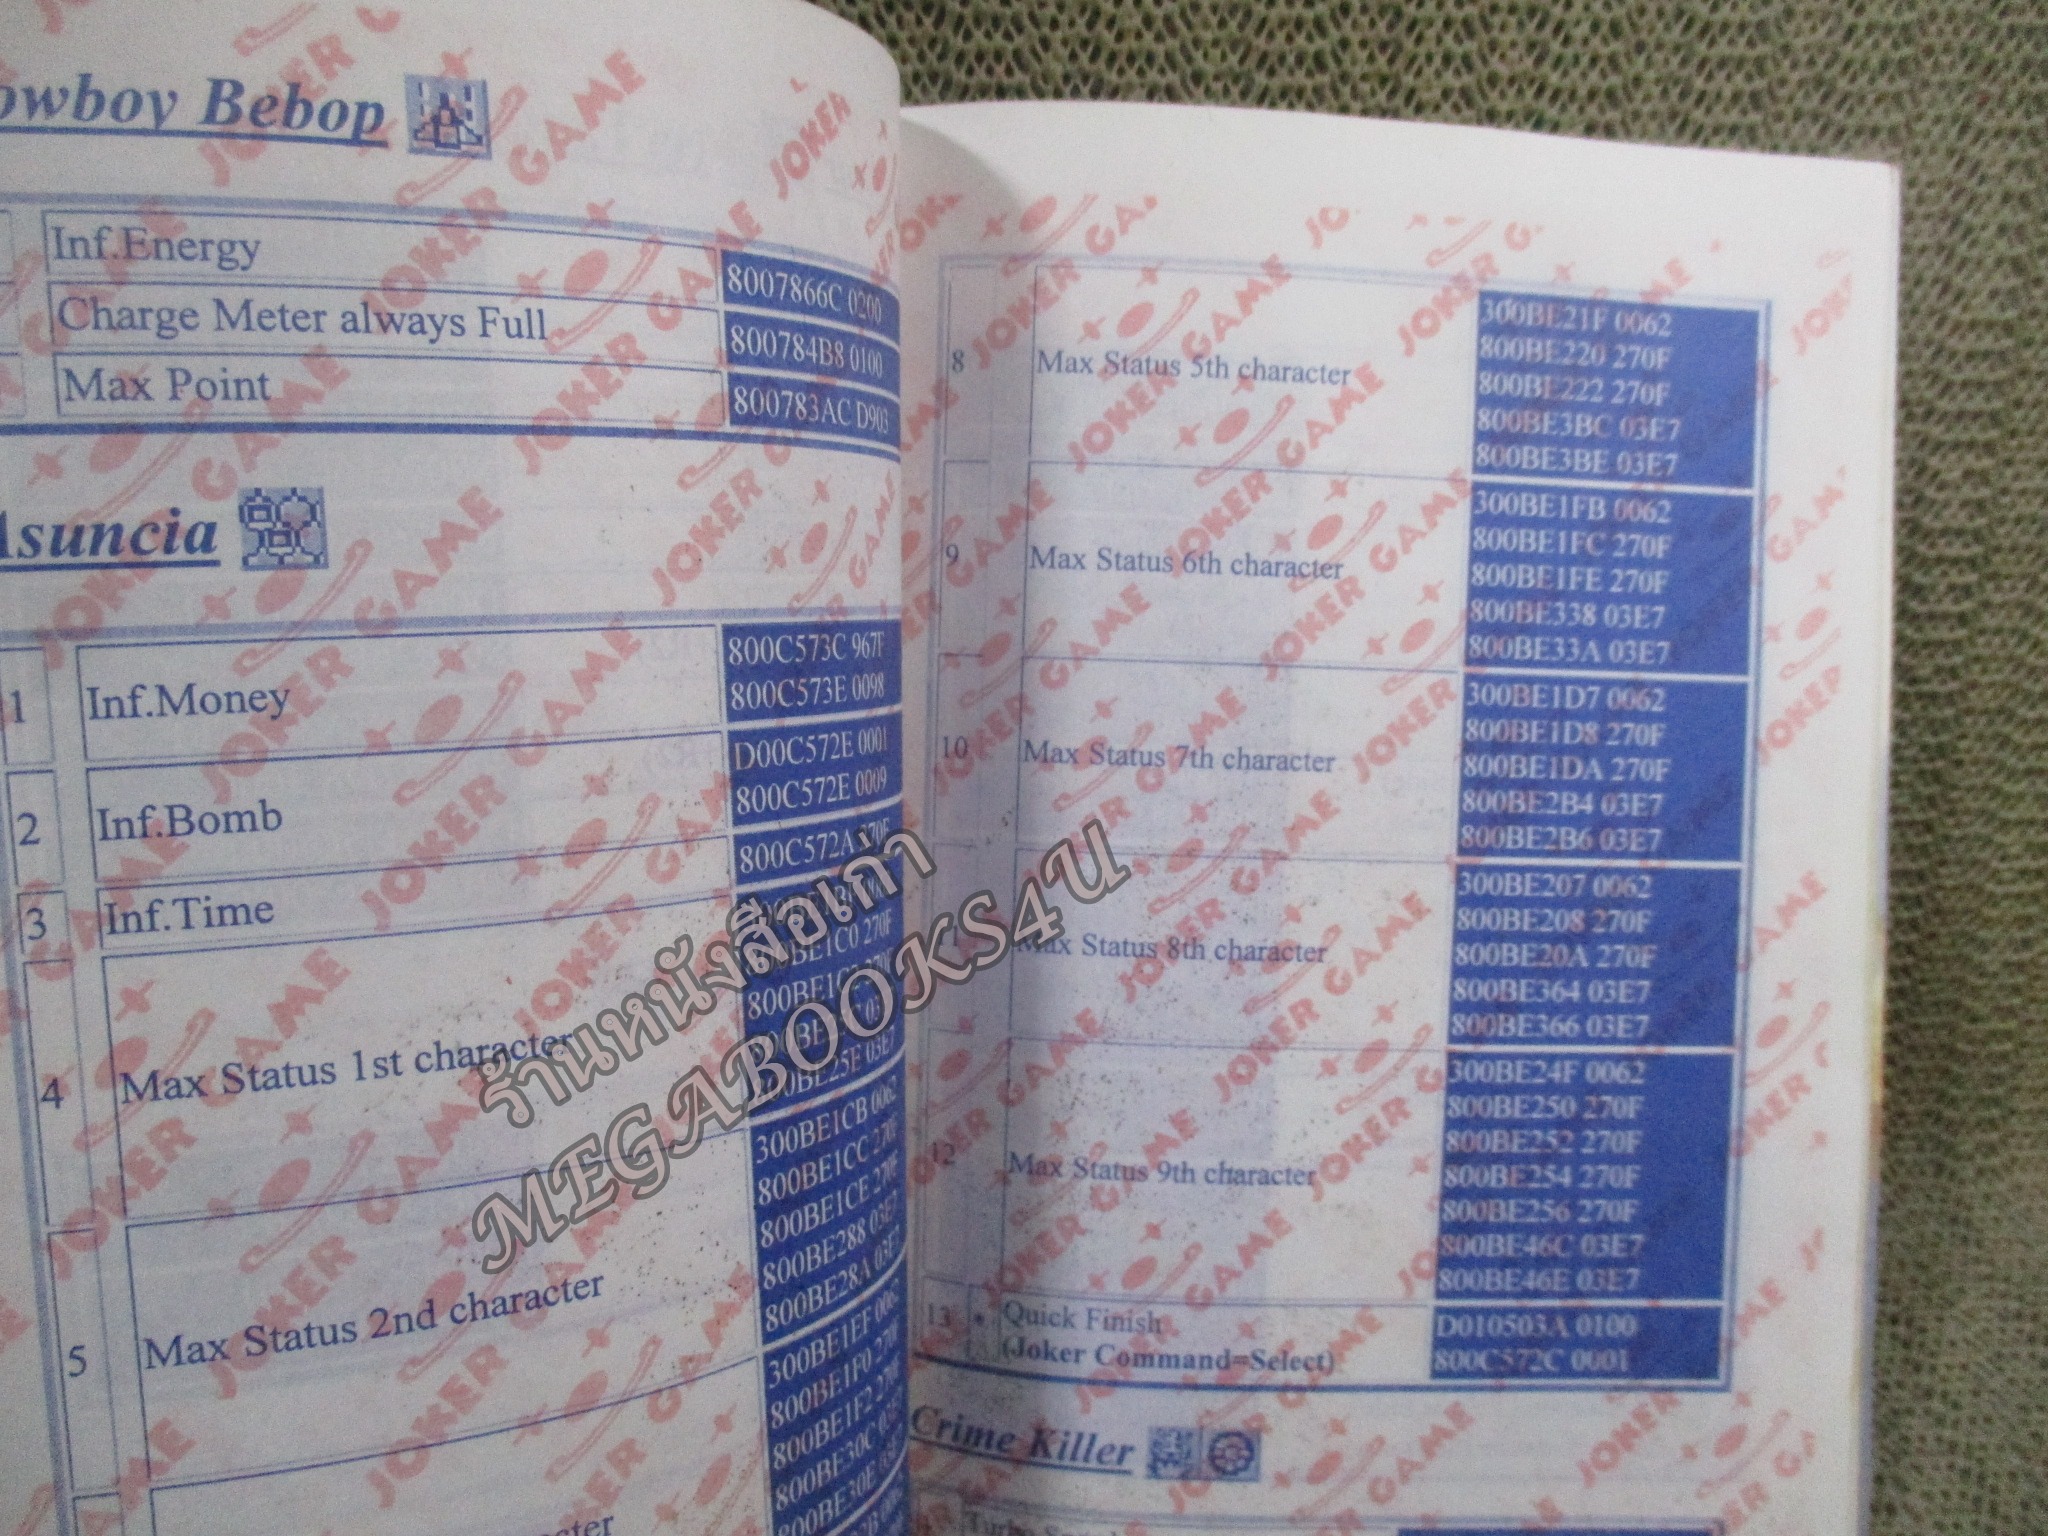 owboy Bebop
Inf.Energy
8007866C 0200
Charge Meter always Full
800784B8 0100
Max Point
800783AC D903
Asuncia
1
Inf.Money
800C573C 967F
800C573E 0098
2
Inf.Bomb
D00C572E 0001
800C572E 0009
3
Inf.Time
800C572A 270F
4
Max Status 1st character
800BE25E 03E7
5
Max Status 2nd character
300BE1CB 0062
800BE1CC 270F
800BE1CE 270F
800BE288 03E7
800BE28A 03E7
300BE1EF 0062
800BE1F0 270F
800BE1F2 270F
800BE30C 03E7
800BE30E 03E7
8
Max Status 5th character
300BE21F 0062
800BE220 270F
800BE222 270F
800BE3BC 03E7
800BE3BE 03E7
9
Max Status 6th character
300BE1FB 0062
800BE1FC 270F
800BE1FE 270F
800BE338 03E7
800BE33A 03E7
10
Max Status 7th character
300BE1D7 0062
800BE1D8 270F
800BE1DA 270F
800BE2B4 03E7
800BE2B6 03E7
Max Status 8th character
300BE207 0062
800BE208 270F
800BE20A 270F
800BE364 03E7
800BE366 03E7
12
Max Status 9th character
300BE24F 0062
800BE250 270F
800BE252 270F
800BE254 270F
800BE256 270F
800BE46C 03E7
800BE46E 03E7
13
Quick Finish
(Joker Command=Select)
D010503A 0100
800C572C 0001
Crime Killer
ร้านหนังสือเก่า
MEGABOOKS4U
JOKER GAME